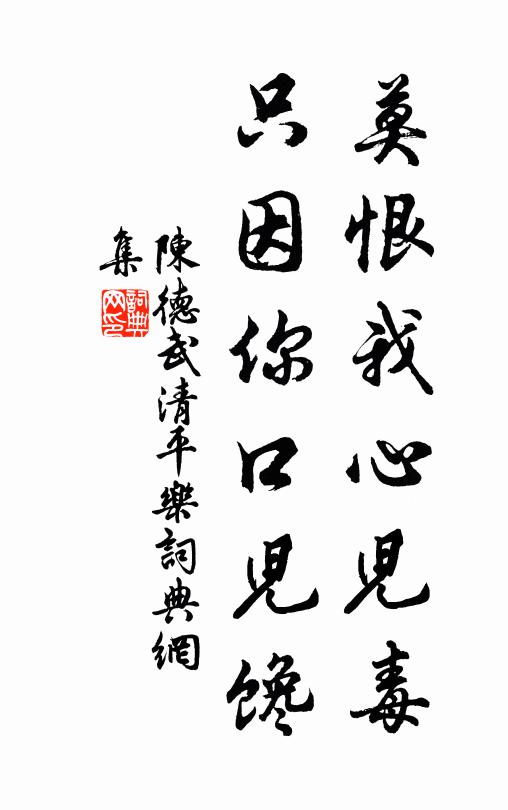 莫恨我心兒毒
只因你口兒馋
陳德武清平樂詞典網
集
詞典
网印